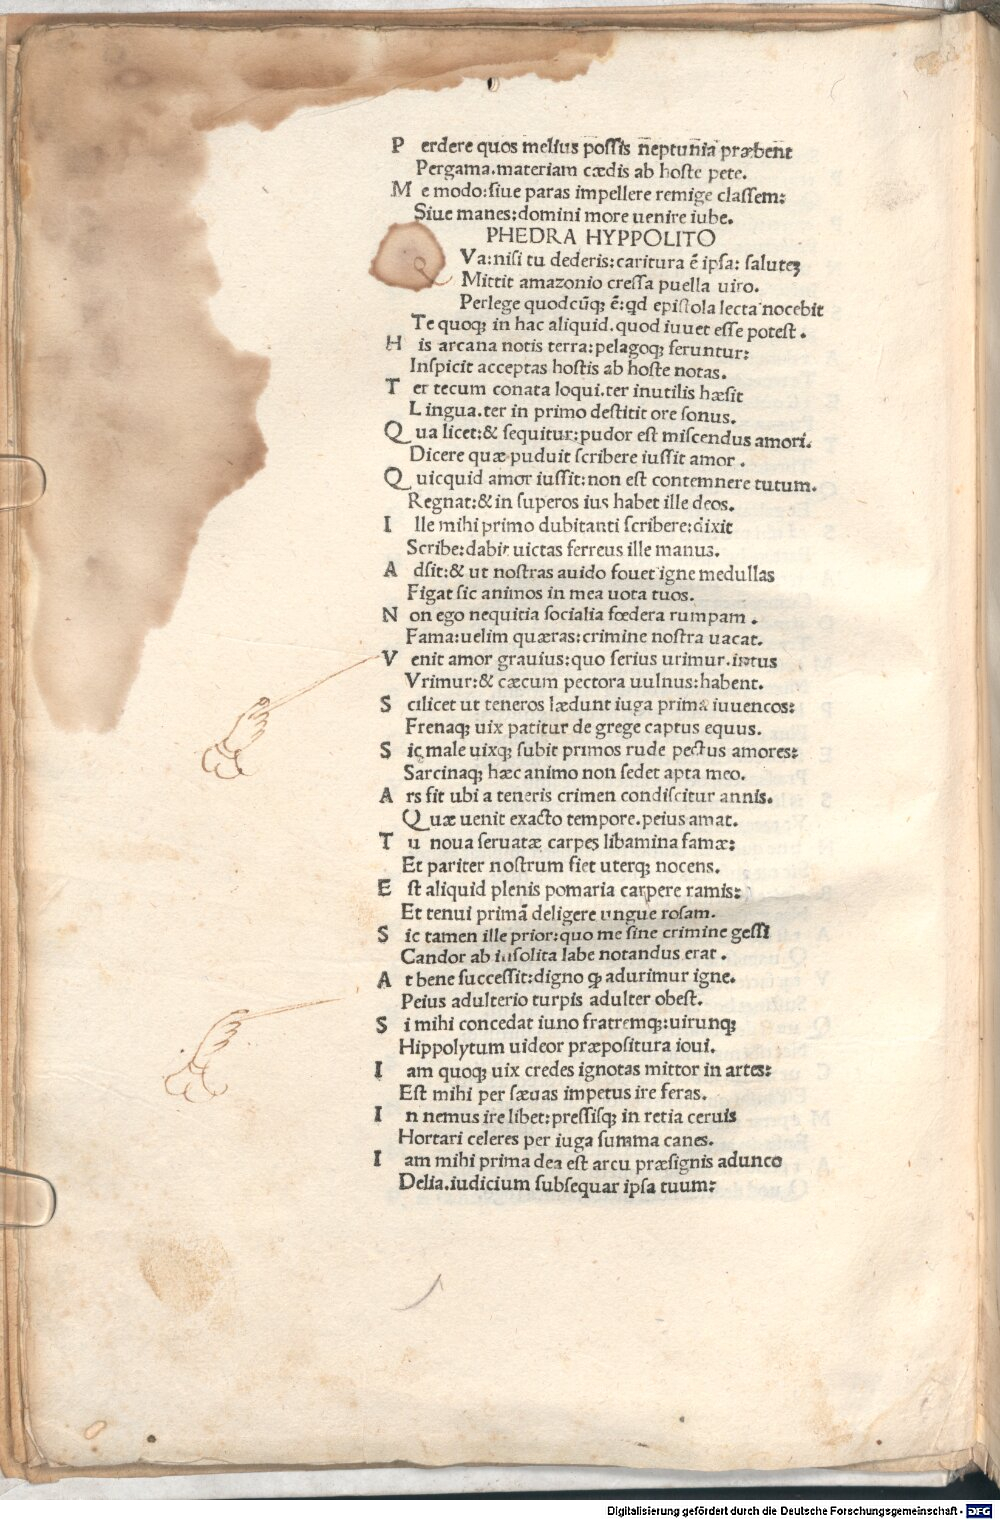 P erdere quos melius possis neptunia præbent
Pergama.materiam cædis ab hoste pete.
M e modo:siue paras impellere remige classem:
Siue manes:domini more uenire iube.
PHEDRA HYPPOLITO
Va:nisi tu dederis:caritura ē ipsa: saluteꝫ
Mittit amazonio cressa puella uiro.
Perlege quodcūqꝫ ē:qd epistola lecta nocebit
Te quoqꝫ in hac aliquid.quod iuuet esse potest.
H is arcana notis terra:pelagoqꝫ feruntur:
Inspicit acceptas hostis ab hoste notas.
T er tecum conata loqui.ter inutilis hæsit
Lingua.ter in primo destitit ore sonus.
Q ua licet:& sequitur:pudor est miscendus amori.
Dicere quæ puduit scribere iussit amor.
Q uicquid amor iussit:non est contemnere tutum.
Regnat:& in superos ius habet ille deos.
I lle mihi primo dubitanti scribere:dixit
Scribe:dabit uictas ferreus ille manus.
A dsit:& ut nostras auido fouet igne medullas
Figat sic animos in mea uota tuos.
N on ego nequitia socialia fœdera rumpam.
Fama:uelim quæras:crimine nostra uacat.
V enit amor grauius:quo serius urimur.intus
Vrimur:& cæcum pectora uulnus:habent.
S cilicet ut teneros lædunt iuga prima iuuencos:
Frenaqꝫ uix patitur de grege captus equus.
S ic male uixqꝫ subit primos rude pectus amores:
Sarcinaqꝫ hæc animo non sedet apta meo.
A rs fit ubi a teneris crimen condiscitur annis.
Quæ uenit exacto tempore.peius amat.
T u noua seruatæ carpes libamina famæ:
Et pariter nostrum fiet uterqꝫ nocens.
E st aliquid plenis pomaria carpere ramis:
Et tenui primā deligere ungue rosam.
S ic tamen ille prior:quo me sine crimine gessi
Candor ab insolita labe notandus erat.
A t bene successit:digno ꝙ adurimur igne.
Peius adulterio turpis adulter obest.
S i mihi concedat iuno fratremqꝫ:uirunqꝫ
Hippolytum uideor præpositura ioui.
I am quoqꝫ uix credes ignotas mittor in artes:
Est mihi per sæuas impetus ire feras.
I n nemus ire libet:pressisqꝫ in retia ceruis
Hortari celeres per iuga summa canes.
I am mihi prima dea est arcu præsignis adunco
Delia.iudicium subsequar ipsa tuum:
Digitalisierung gefördert durch die Deutsche Forschungsgemeinschaft - DFG